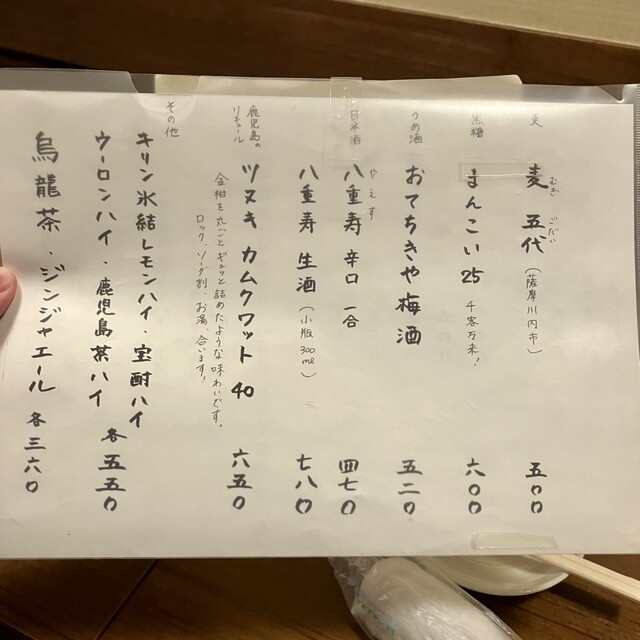 麦
麦 五代（薩摩川内市） 五〇〇
むぎ ごだい
黒糖
まんこい 25 千客万来！ 六〇〇
うめ酒
おてちきや梅酒 五二〇
日本酒
やえす
八重寿 辛口 一合 四七〇
八重寿 生酒（小瓶 300ml） 七八〇
鹿児島の
リキュール
ツヌキ カムクワット 40 六五〇
金柑を丸ごとギュッと詰めたような味わいです。
ロック、ソーダ割、お湯、合います！
その他
キリン氷結レモンハイ・宝酎ハイ
ウーロンハイ・鹿児島茶ハイ 各五五〇
烏龍茶・ジンジャエール 各三六〇